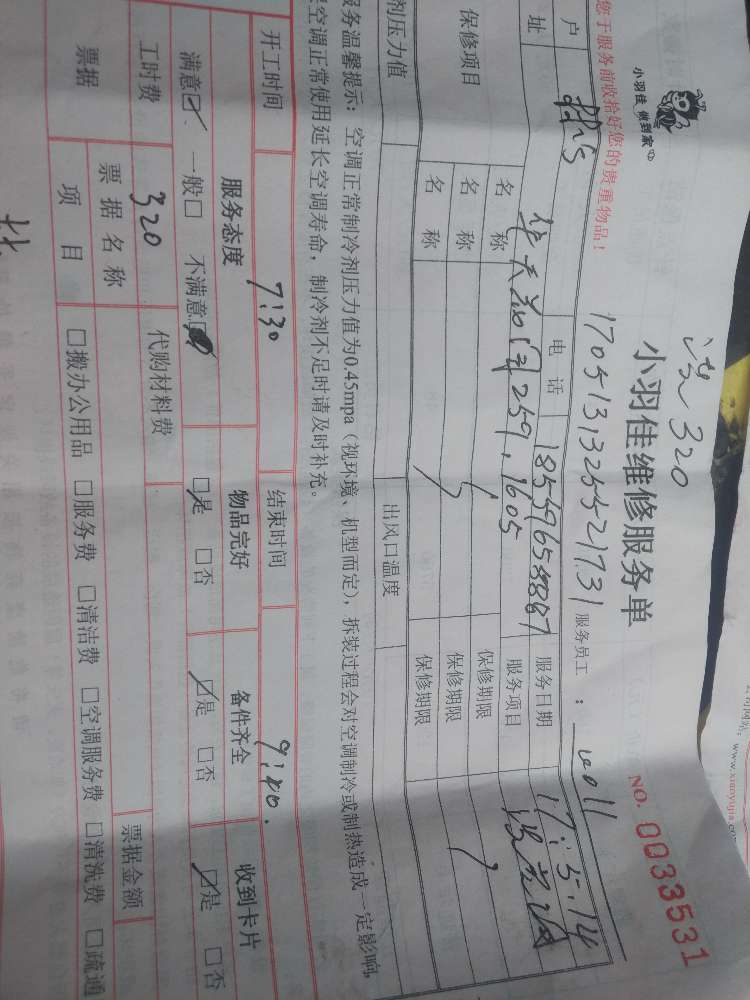 您于服务前收拾好您的贵重物品!
小羽佳 做到家
320
小羽佳维修服务单
NO. 0033531
1705131325521731 服务员工 :
户
电 话 18559658887 服务日期 17.5.14
址 259.1605 服务项目
保修项目 名 称 保修期限
名 称 保修期限
名 称 保修期限
剂压力值 出风口温度
服务温馨提示: 空调正常制冷剂压力值为0.45mpa(视环境、机型而定),拆装过程会对空调制冷或制热造成一定影响,
空调正常使用延长空调寿命,制冷剂不足时请及时补充。
开工时间 7:30 结束时间 9:20.
服务态度 物品完好 备件齐全 收到卡片
满意☑ 一般□ 不满意□ □是 □否 ☑是 □否 ☑是 □否
工时费 320 代购材料费
票据 票 据 名 称 票据金额
项 目 □搬办公用品 □服务费 □清洁费 □空调服务费 □清洗费 □疏通
www.xiaoyujia.com